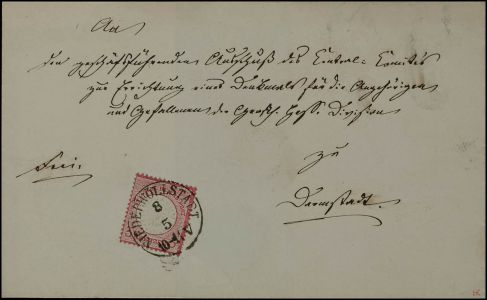 An
den geschäftsführenden Ausschuß des Central-Comités
zur Errichtung eines Denkmals für die Angehörigen
und Gefallenen der Großh. Hess. Division
zu
Frei.
Darmstadt.
NIEDERWÖLLSTADT
8
5
10-11